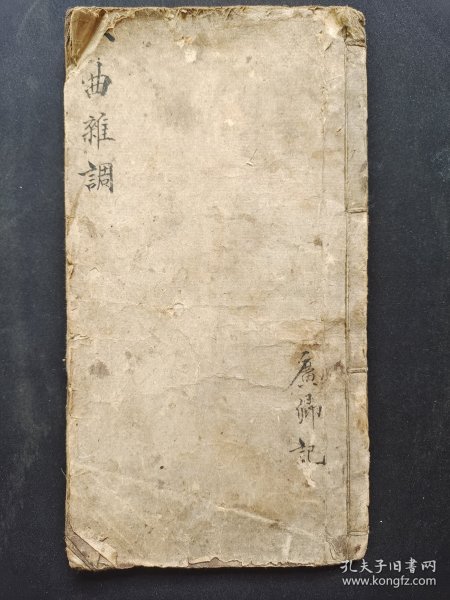 曲雜調
記
孔夫子旧书网
www.kongfz.com